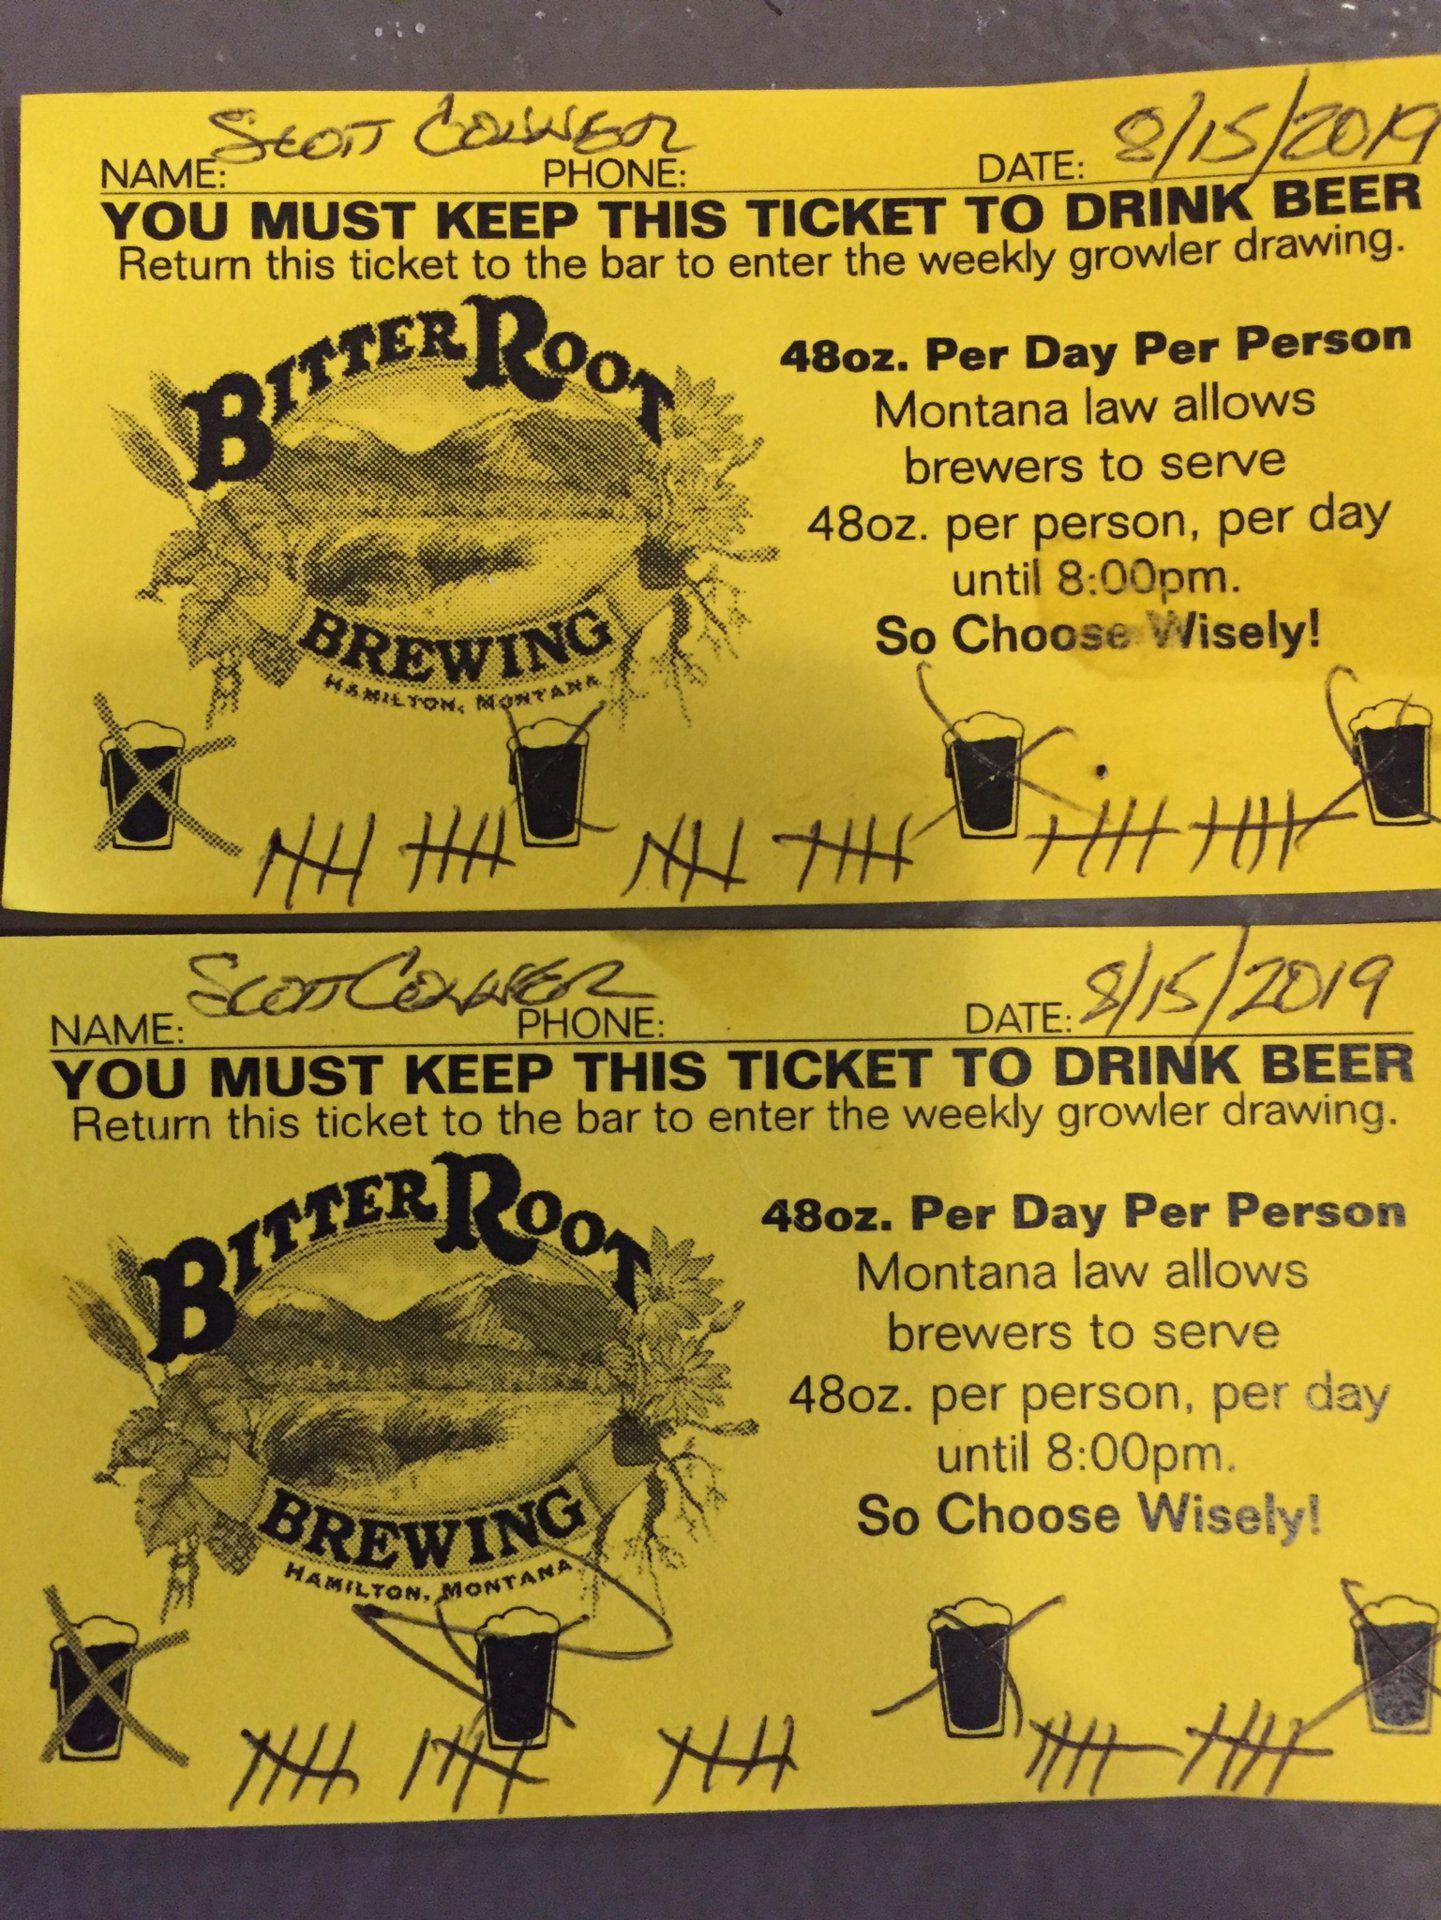 NAME: Scott Conner PHONE: DATE: 8/15/2019
YOU MUST KEEP THIS TICKET TO DRINK BEER
Return this ticket to the bar to enter the weekly growler drawing.
BITTER ROOT
BREWING
HAMILTON, MONTANA
48oz. Per Day Per Person
Montana law allows
brewers to serve
48oz. per person, per day
until 8:00pm.
So Choose Wisely!
NAME: Scott Conner PHONE: DATE: 8/15/2019
YOU MUST KEEP THIS TICKET TO DRINK BEER
Return this ticket to the bar to enter the weekly growler drawing.
BITTER ROOT
BREWING
HAMILTON, MONTANA
48oz. Per Day Per Person
Montana law allows
brewers to serve
48oz. per person, per day
until 8:00pm.
So Choose Wisely!